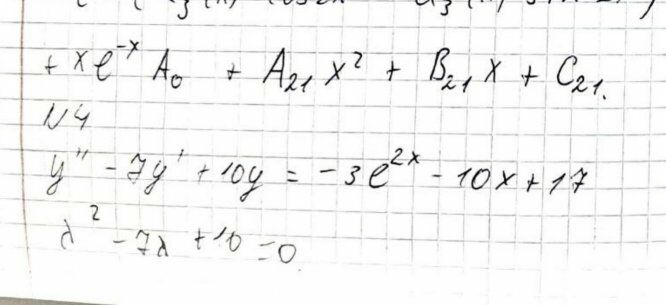 + xe^{-x} A_0 + A_{21} x^2 + B_{21} x + C_{21}.
N4
y'' - 7y' + 10y = -3e^{2x} - 10x + 17
λ^2 - 7λ + 10 = 0